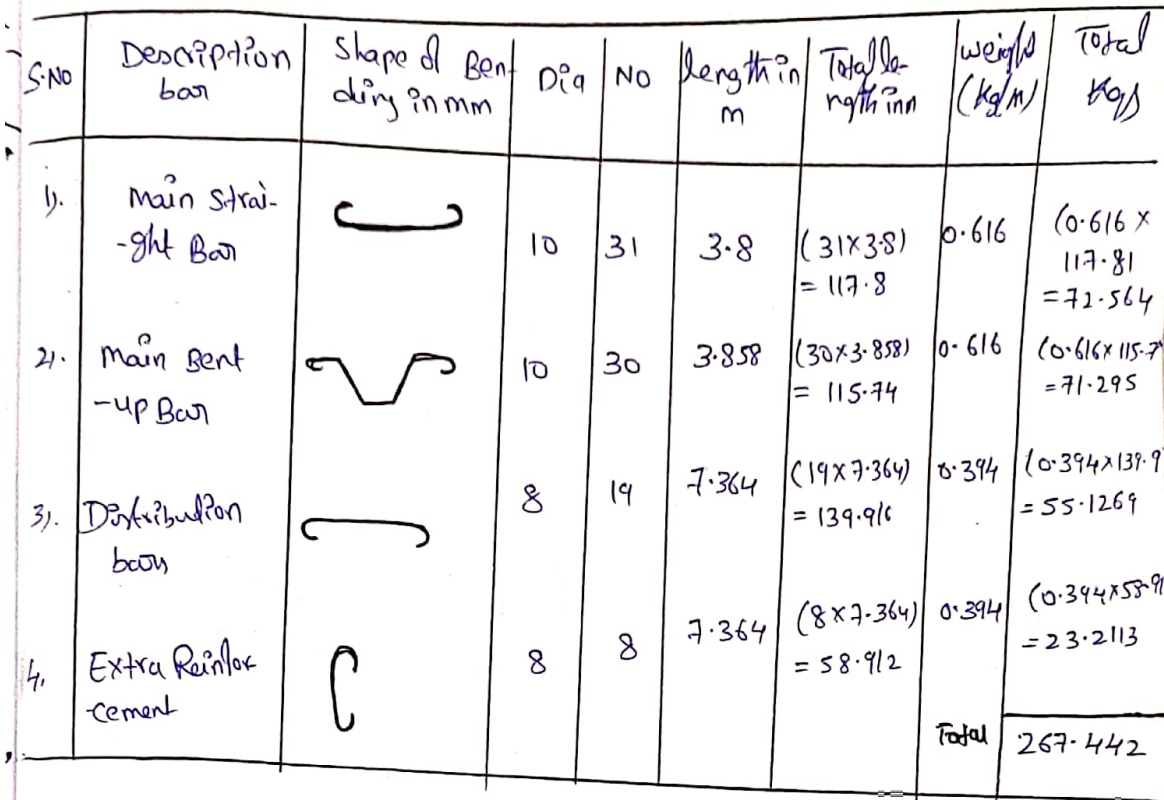 S.NO
Description
bar
Shape of Ben-
ding in mm
Dia
NO
length in
m
Total le-
ngth inn
weight
(kg/m)
Total
Kgs
1).
Main Strai-
-ght Bar
10
31
3.8
(31×3.8)
= 117.8
0.616
(0.616 ×
117.81
=72.564
2).
Main Bent
-up Bar
10
30
3.858
(30×3.858)
= 115.74
0.616
(0.616×115.7
=71.295
3).
Distribution
bars
8
19
7.364
(19×7.364)
= 139.916
0.394
(0.394×139.9
=55.1269
4.
Extra Reinfor
-cement
8
8
7.364
(8×7.364)
= 58.912
0.394
(0.394×58.91
=23.2113
Total
267.442